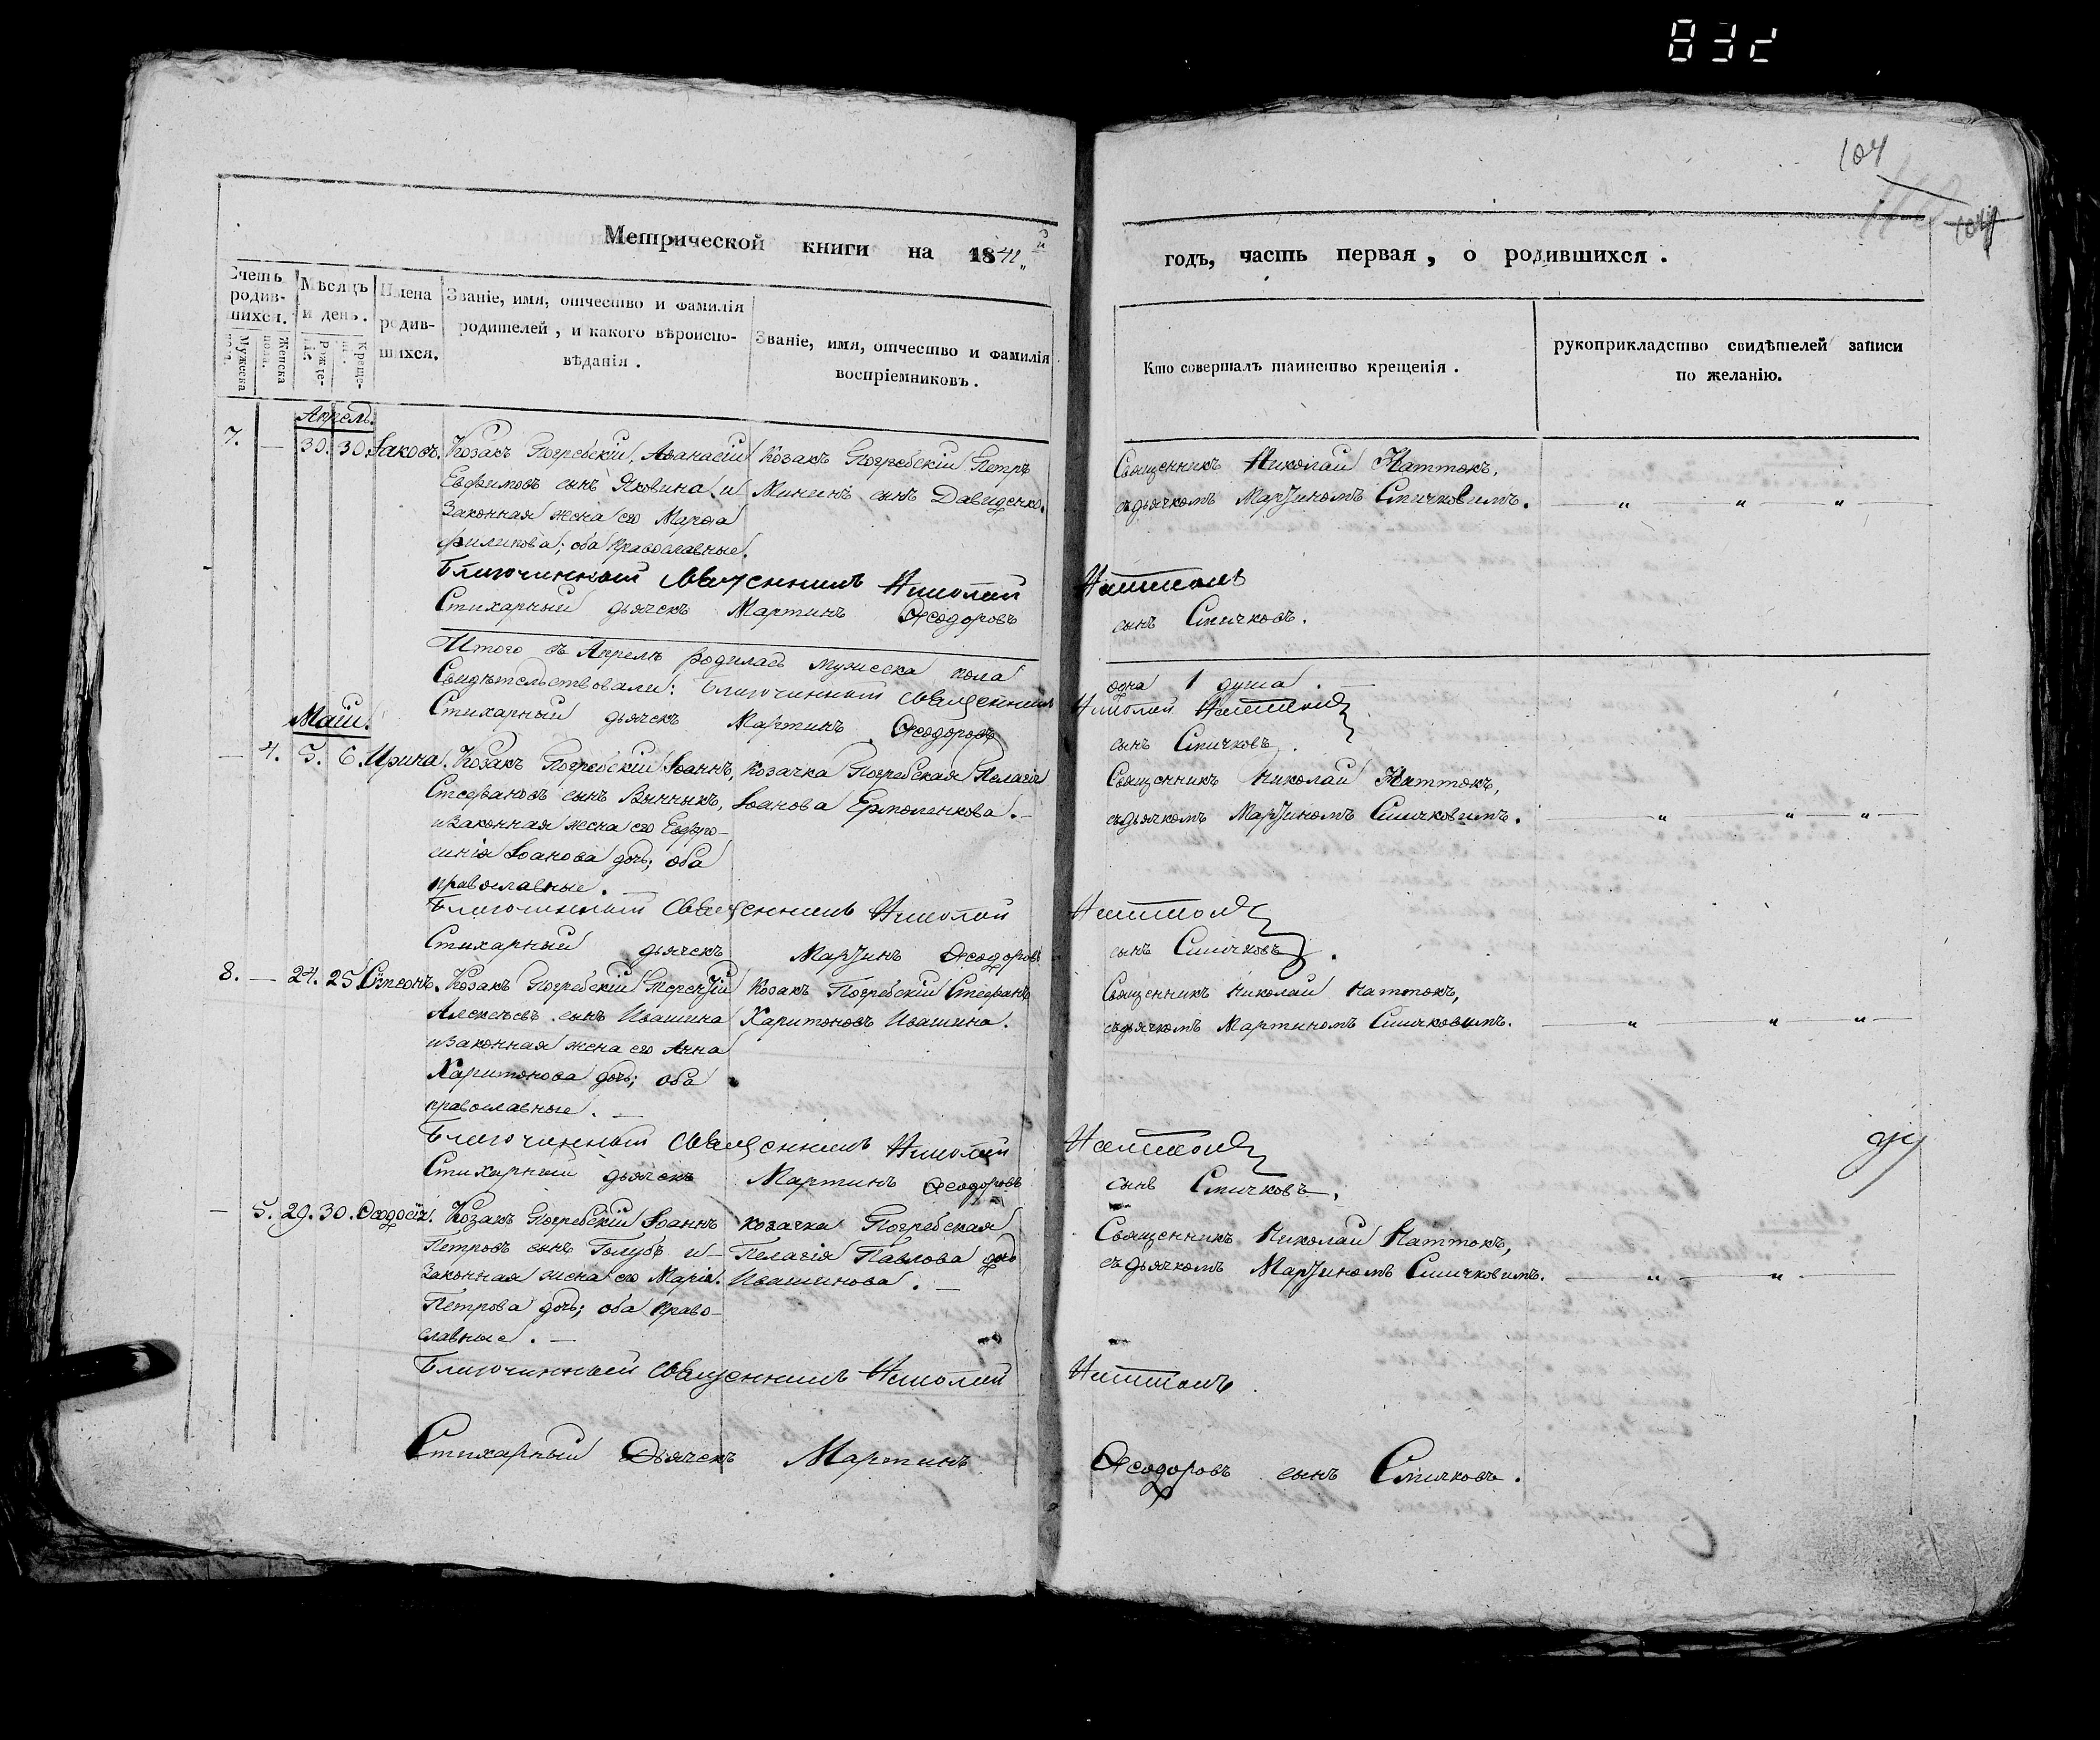 104
104
Метрической книги на 1841й
годъ, часть первая, о родившихся.
Счетъ родив-шихся.
Мѣсяцъ и день.
Имена родив-шихся.
Званіе, имя, отчество и фамилія родителей, и какого вѣроиспо-вѣданія.
Званіе, имя, отчество и фамилія воспріемниковъ.
Кто совершалъ таинство крещенія.
рукоприкладство свидѣтелей записи по желанію.
Мужеска
Женска пола.
Рожде-нія.
Креще-
Апрель.
7. — 30. 30. Іаковъ. Козакъ Погребскій, Аѳанасій Козакъ Погребскій Петръ
Евфимовъ сынъ Яковина, и Мининъ сынъ Давиденко.
Законная жена его Марѳа
Филипова; оба православные.
Священникъ Николай Наттокъ,
съ дьячкомъ Мартиномъ Спичковимъ.
Благочинный Священникъ Николай Наттокъ
Стихарный дьячекъ Мартинъ Ѳеодоровъ сынъ Спичковъ.
Итого въ Апрелѣ родилась мужеска пола одна 1 душа.
Свидѣтельствовали: Благочинный Священникъ Николай Наттокъ
Стихарный дьячекъ Мартинъ Ѳеодоровъ сынъ Спичковъ.
Маій.
— 4. 5. 6. Ирина. Козакъ Погребскій Іоаннъ, Козачка Погребская Пелагія
Стефановъ сынъ Винникъ, Іоанова Ермоленкова. —
и Законная жена его Евфро-
синія Іоанова дочь; оба
православные. —
Священникъ Николай Наттокъ,
съ дьячкомъ Мартиномъ Спичковимъ.
Благочинный Священникъ Николай Наттокъ
Стихарный дьячекъ Мартинъ Ѳеодоровъ сынъ Спичковъ.
8. — 24. 25. Сѵмеонъ. Козакъ Погребскій Терентій Козакъ Погребскій Стефанъ
Алексѣевъ сынъ Ивашина Харитоновъ Ивашина.
и Законная жена его Анна
Харитонова дочь; оба
православные. —
Священникъ Николай Наттокъ,
съ дьячкомъ Мартиномъ Спичковимъ.
Благочинный Священникъ Николай Наттокъ
Стихарный дьячекъ Мартинъ Ѳеодоровъ сынъ Спичковъ.
— 5. 29. 30. Ѳеодосія. Козакъ Погребскій Іоаннъ козачка Погребская
Петровъ сынъ Голубъ и — Пелагія Павлова дочь
Законная жена его Марія. Ивашинова. —
Петрова дочь; оба право-
славные. —
Священникъ Николай Наттокъ,
съ дьячкомъ Мартиномъ Спичковимъ.
Благочинный Священникъ Николай Наттокъ
Стихарный Дьячекъ Мартинъ Ѳеодоровъ сынъ Спичковъ.